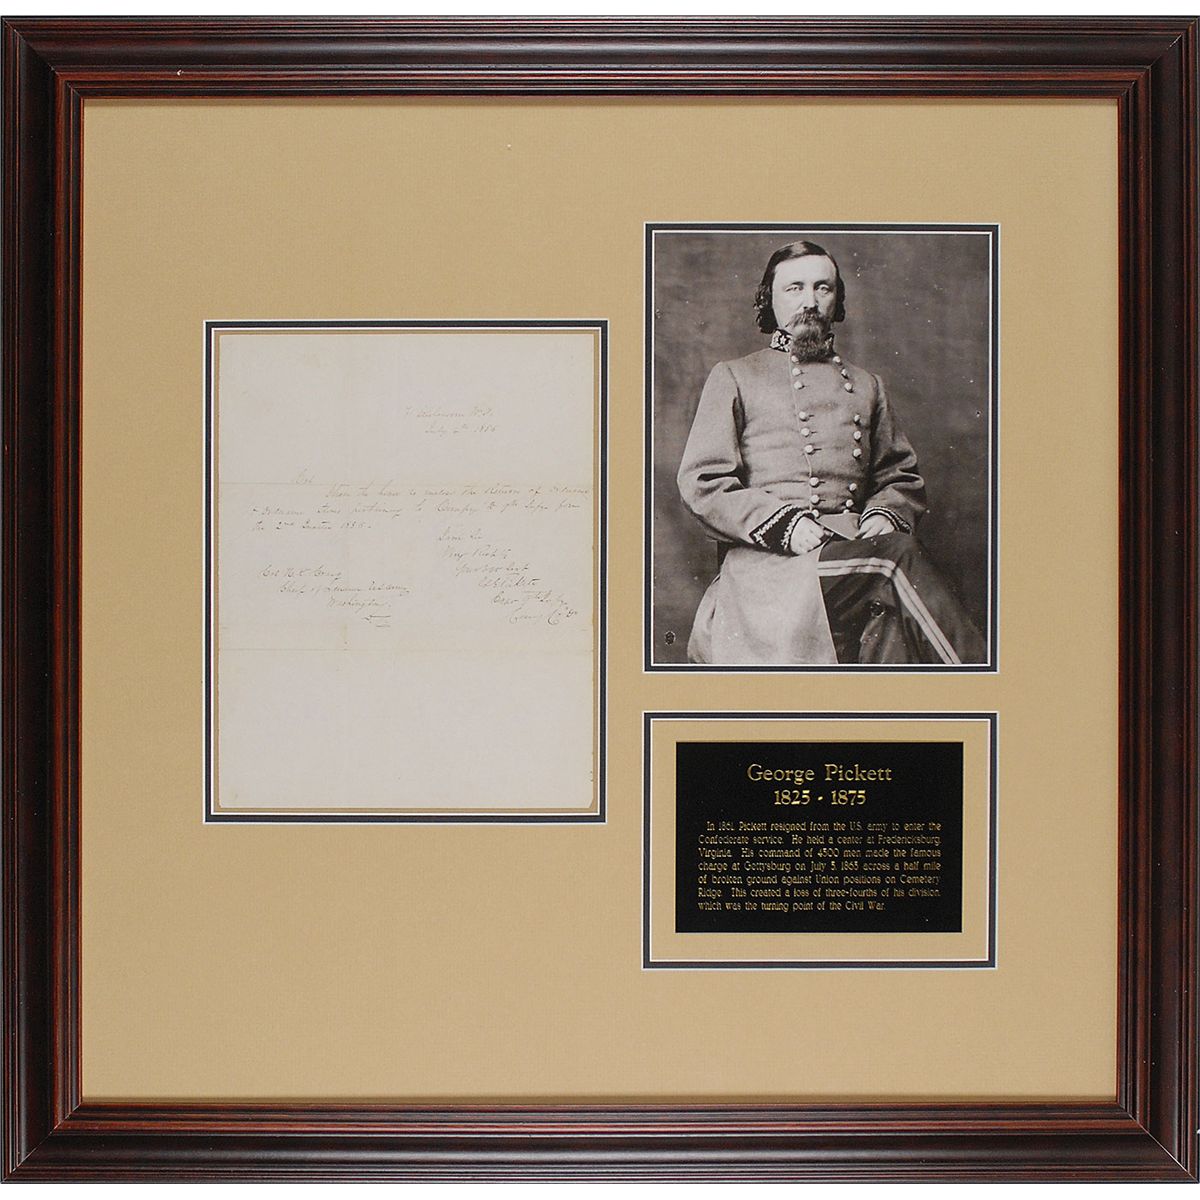 July 2nd 1856
Col
I have the honor to enclose the Return of Ordnance
& Ordnance Stores pertaining to Company 9th Infy for
the 2nd Quarter 1856.
I am Sir
Very Respy
Your Obt Servt
G E Pickett
Capt 9th Infy
Comg Co
Col H. K. Craig
Chief of Ordnance US Army
Washington
George Pickett
1825 - 1875
In 1861, Pickett resigned from the U.S. army to enter the
Confederate service. He held a center at Fredericksburg,
Virginia. His command of 4500 men made the famous
charge at Gettysburg on July 3, 1863 across a half mile
of broken ground against Union positions on Cemetery
Ridge. This created a loss of three-fourths of his division,
which was the turning point of the Civil War.